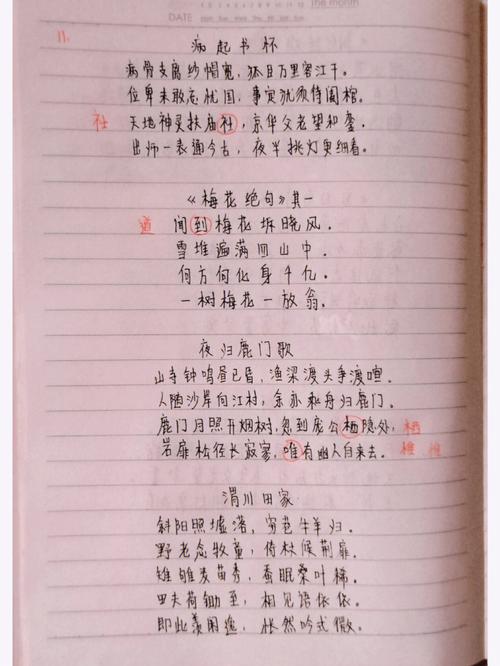 The month
DATE Mon Tue Wed Thu Fri Sat Sun
11.
病起书怀
病骨支离纱帽宽，孤臣万里客江干。
位卑未敢忘忧国，事定犹须待阖棺。
社 天地神灵扶庙社，京华父老望和銮。
出师一表通今古，夜半挑灯更细看。
《梅花绝句》其一
道 闻到梅花坼晓风，
雪堆遍满四山中。
何方何化身千亿。
一树梅花一放翁。
夜归鹿门歌
山寺钟鸣昼已昏，渔梁渡头争渡喧。
人随沙岸向江村，余亦乘舟归鹿门。
鹿门月照开烟树，忽到庞公栖隐处，栖
岩扉松径长寂寥，唯有幽人自来去。
渭川田家
斜阳照墟落，穷巷牛羊归。
野老念牧童，倚杖候荆扉。
雉雊麦苗秀，蚕眠桑叶稀。
田夫荷锄至，相见语依依。
即此羡闲逸，怅然吟式微。